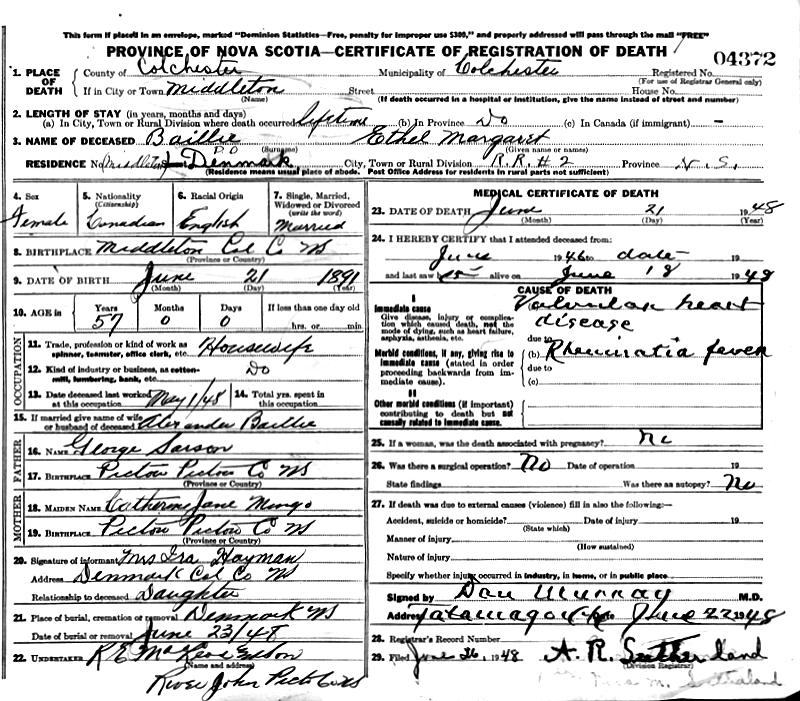 This form if placed in an envelope, marked "Dominion Statistics—Free, penalty for improper use $300," and properly addressed will pass through the mail "FREE"
PROVINCE OF NOVA SCOTIA—CERTIFICATE OF REGISTRATION OF DEATH
04372
1. PLACE OF DEATH County of Colchester Municipality of Colchester Registered No.
(For use of Registrar General only)
If in City or Town Middleton Street House No.
(Name) (If death occurred in a hospital or institution, give the name instead of street and number)
2. LENGTH OF STAY (in years, months and days)
(a) In City, Town or Rural Division where death occurred lifetime (b) In Province Do (c) In Canada (if immigrant) —
3. NAME OF DECEASED Baillie Ethel Margaret
(Surname) (Given name or names)
RESIDENCE No. Middleton P O Denmark City, Town or Rural Division R.R. #2 Province N.S.
(Residence means usual place of abode. Post Office Address for residents in rural parts not sufficient)
4. Sex Female
5. Nationality (Citizenship) Canadian
6. Racial Origin English
7. Single, Married, Widowed or Divorced (write the word) Married
8. BIRTHPLACE Middleton Col Co NS
(Province or Country)
9. DATE OF BIRTH June 21 1891
(Month) (Day) (Year)
10. AGE in Years 57 Months 0 Days 0 If less than one day old
hrs. or min.
OCCUPATION
11. Trade, profession or kind of work as spinner, teamster, office clerk, etc. Housewife
12. Kind of industry or business, as cotton-mill, lumbering, bank, etc. Do
13. Date deceased last worked at this occupation May 1/48 14. Total yrs. spent in this occupation
15. If married give name of wife or husband of deceased Alexander Baillie
FATHER
16. Name George Sarson
17. BIRTHPLACE Pictou Pictou Co NS
(Province or Country)
MOTHER
18. MAIDEN NAME Catherine Jane Mingo
19. BIRTHPLACE Pictou Pictou Co NS
(Province or Country)
20. Signature of informant Mrs Ira Hayman
Address Denmark Col Co NS
Relationship to deceased Daughter
21. Place of burial, cremation or removal Denmark NS
Date of burial or removal June 23/48
22. UNDERTAKER R E
(Name and address)
River John Pictou Co NS
MEDICAL CERTIFICATE OF DEATH
23. DATE OF DEATH June 21 1948
(Month) (Day) (Year)
24. I HEREBY CERTIFY that I attended deceased from:
June 1946 to date
and last saw alive on June 18 1948
CAUSE OF DEATH
I
Immediate cause
Give disease, injury or complication which caused death, not the mode of dying, such as heart failure, asphyxia, asthenia, etc.
Valvular heart disease
due to
Morbid conditions, if any, giving rise to immediate cause (stated in order proceeding backwards from immediate cause).
(b) Rheumatic fever
due to
(c)
II
Other morbid conditions (if important) contributing to death but not causally related to immediate cause.
25. If a woman, was the death associated with pregnancy? No
26. Was there a surgical operation? No Date of operation 19
State findings Was there an autopsy? No
27. If death was due to external causes (violence) fill in also the following:—
Accident, suicide or homicide? Date of injury 19
(State which)
Manner of injury
(How sustained)
Nature of injury
Specify whether injury occurred in industry, in home, or in public place
Signed by Dan Murray M.D.
Address Tatamagouche Date June 22 1948
28. Registrar's Record Number
29. Filed June 26, 1948 A. R. Sutherland
(Division Registrar)
M. Sutherland